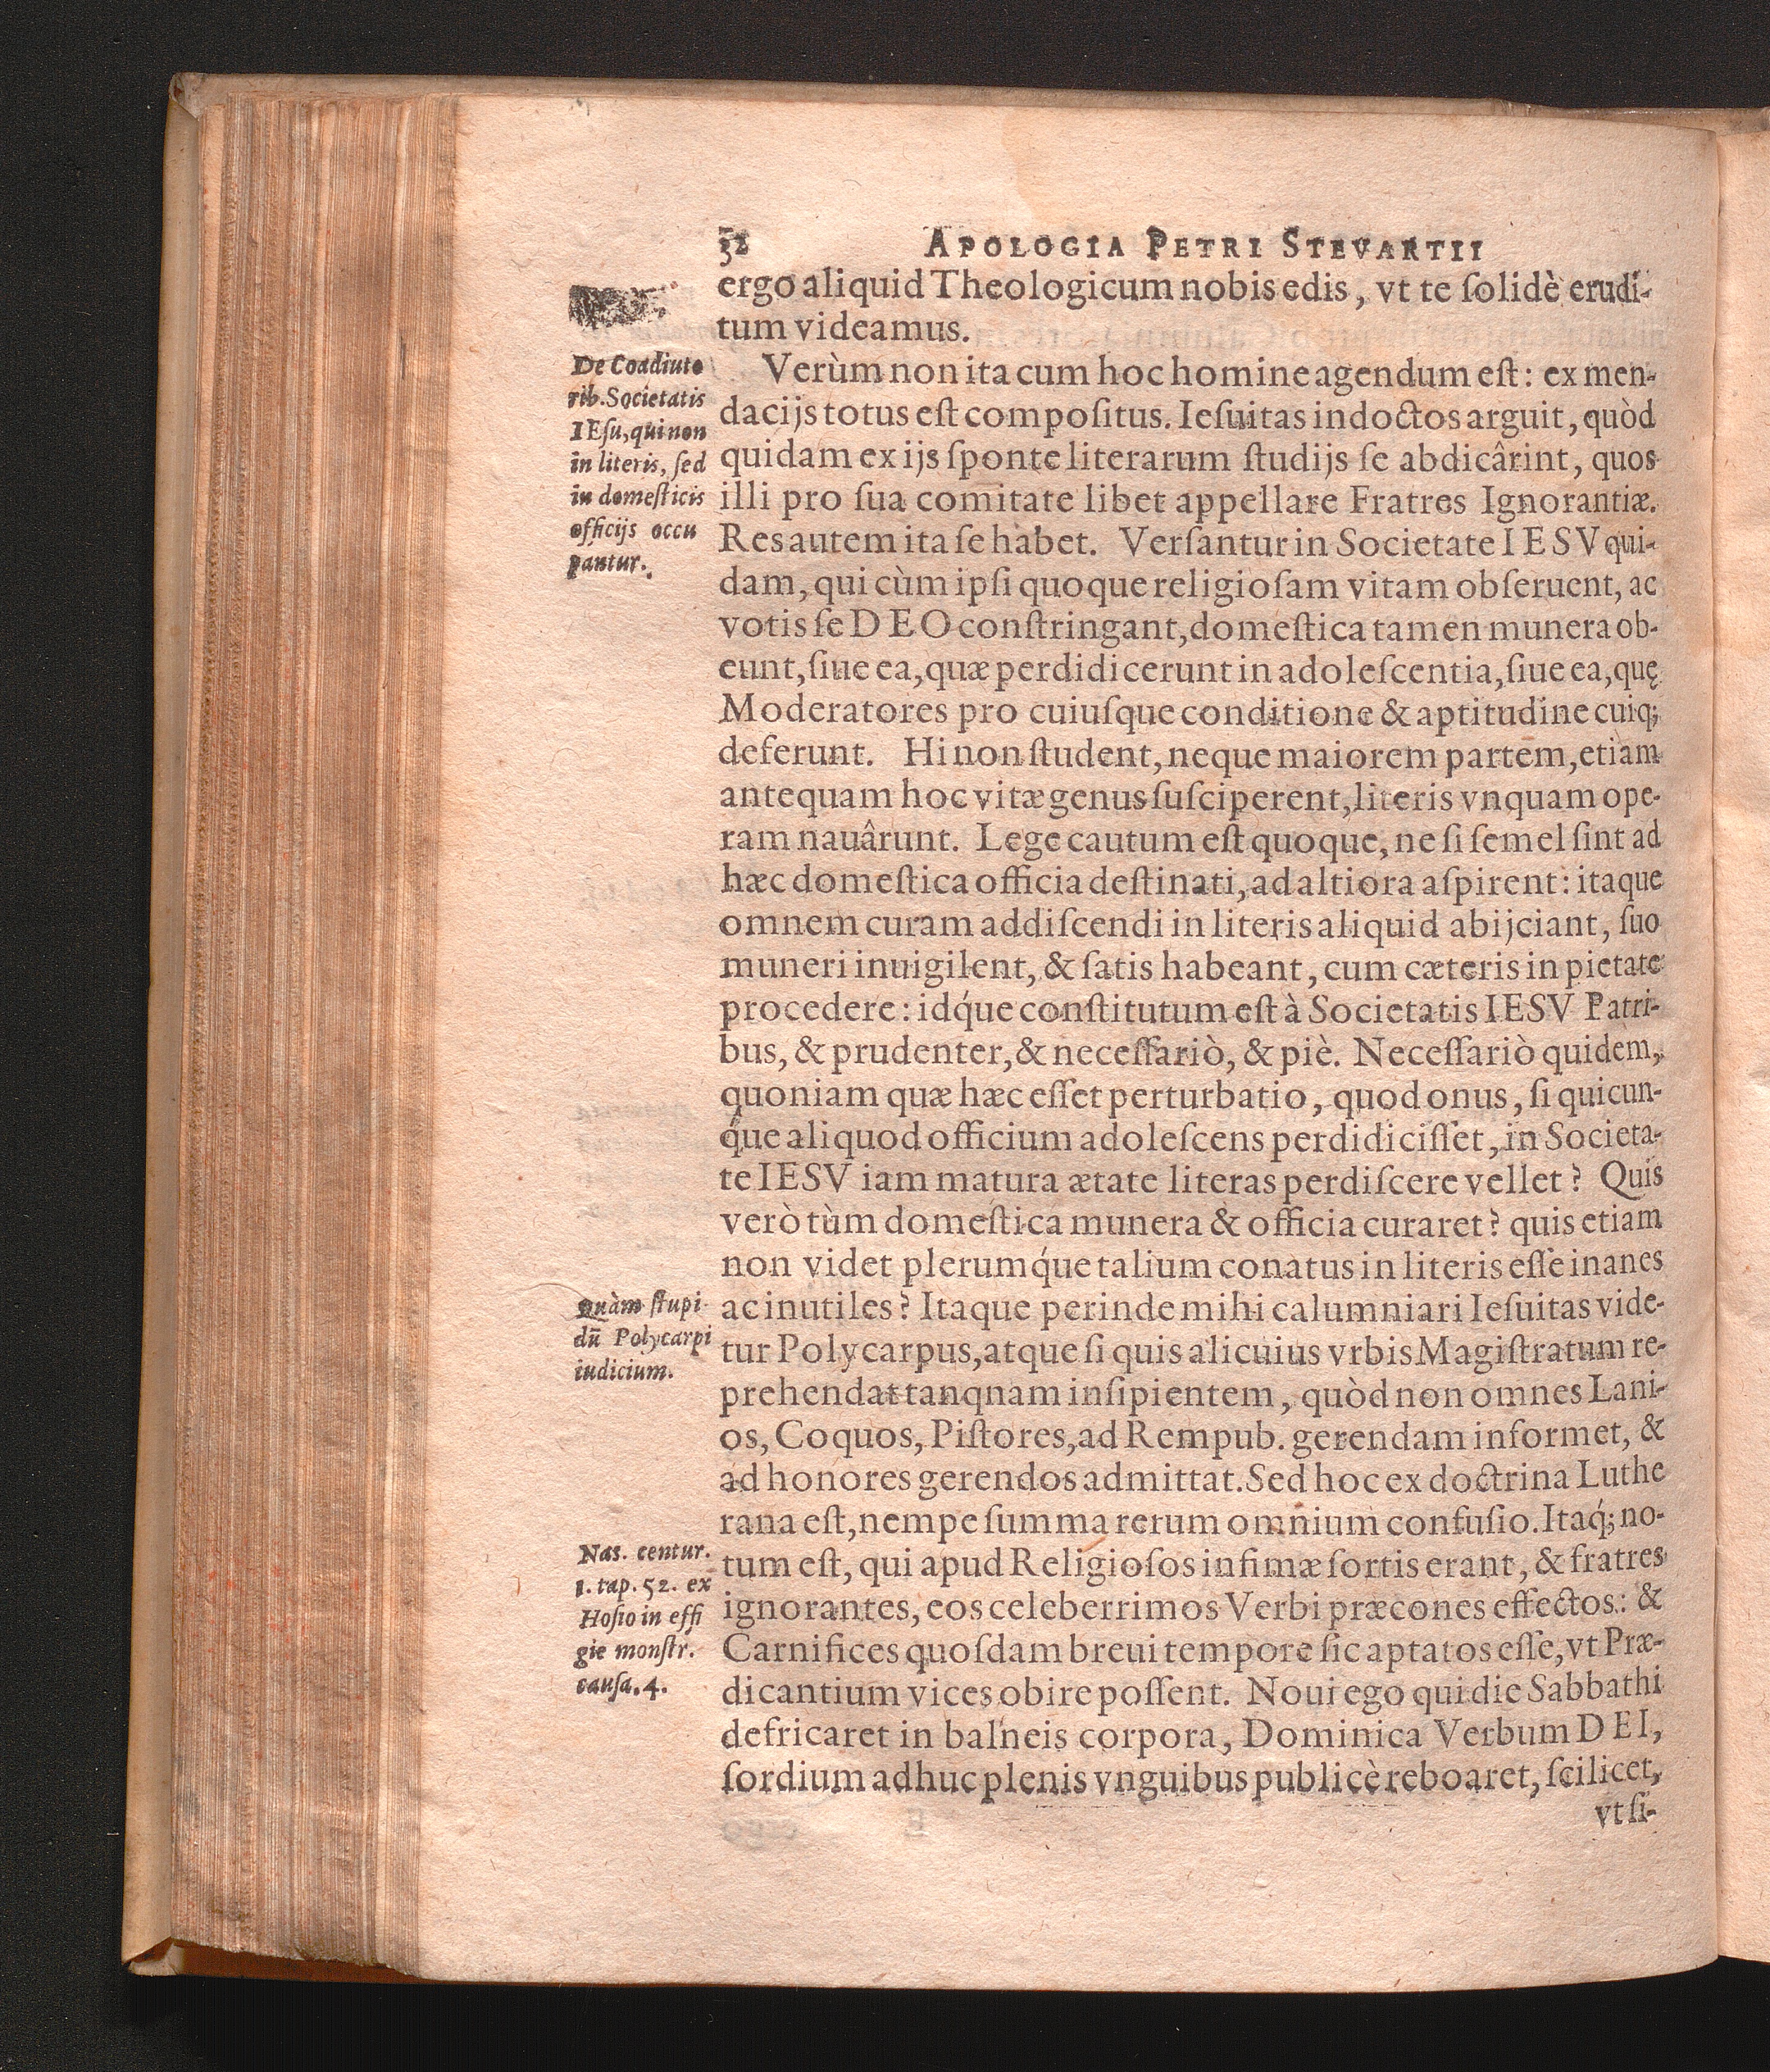 32 APOLOGIA PETRI STEVARTII
ergo aliquid Theologicum nobis edis, vt te ſolidè erudi-
tum videamus.
De Coadiuto
rib. Societatis
IEſu, qui non
in literis, ſed
in domeſticis
officijs occu
pantur.
Verùm non ita cum hoc homine agendum eſt: ex men-
dacijs totus eſt compoſitus. Ieſuitas indoctos arguit, quòd
quidam ex ijs ſponte literarum ſtudijs ſe abdicârint, quos
illi pro ſua comitate libet appellare Fratres Ignorantiæ.
Res autem ita ſe habet. Verſantur in Societate IESV qui-
dam, qui cùm ipſi quoque religioſam vitam obſeruent, ac
votis ſe DEO conſtringant, domeſtica tamen munera ob-
eunt, ſiue ea, quæ perdidicerunt in adoleſcentia, ſiue ea, quę
Moderatores pro cuiuſque conditione & aptitudine cuiq;
deferunt. Hi non ſtudent, neque maiorem partem, etiam
antequam hoc vitæ genus ſuſciperent, literis vnquam ope-
ram nauârunt. Lege cautum eſt quoque, ne ſi ſemel ſint ad
hæc domeſtica officia deſtinati, ad altiora aſpirent: itaque
omnem curam addiſcendi in literis aliquid abijciant, ſuo
muneri inuigilent, & ſatis habeant, cum cæteris in pietate
procedere: idq́ue conſtitutum eſt à Societatis IESV Patri-
bus, & prudenter, & neceſſariò, & piè. Neceſſariò quidem,
quoniam quæ hæc eſſet perturbatio, quod onus, ſi quicun-
q́ue aliquod officium adoleſcens perdidiciſſet, in Societa-
te IESV iam matura ætate literas perdiſcere vellet? Quis
verò tùm domeſtica munera & officia curaret? quis etiam
non videt plerumq́ue talium conatus in literis eſſe inanes
ac inutiles? Itaque perinde mihi calumniari Ieſuitas vide-
tur Polycarpus, atque ſi quis alicuius vrbis Magiſtratum re-
prehendat tanqnam inſipientem, quòd non omnes Lani-
os, Coquos, Piſtores, ad Rempub. gerendam informet, &
ad honores gerendos admittat. Sed hoc ex doctrina Luthe
rana eſt, nempe ſumma rerum omnium confuſio. Itaq́; no-
tum eſt, qui apud Religioſos infimæ ſortis erant, & fratres
ignorantes, eos celeberrimos Verbi præcones effectos: &
Carnifices quoſdam breui tempore ſic aptatos eſſe, vt Præ-
dicantium vices obire poſſent. Noui ego qui die Sabbathi
defricaret in balneis corpora, Dominica Verbum DEI,
ſordium adhuc plenis vnguibus publicè reboaret, ſcilicet,
vt ſi-
Quàm ſtupi
dū Polycarpi
iudicium.
Nas. centur.
1. tap. 52. ex
Hoſio in effi
gie monſtr.
cauſa. 4.